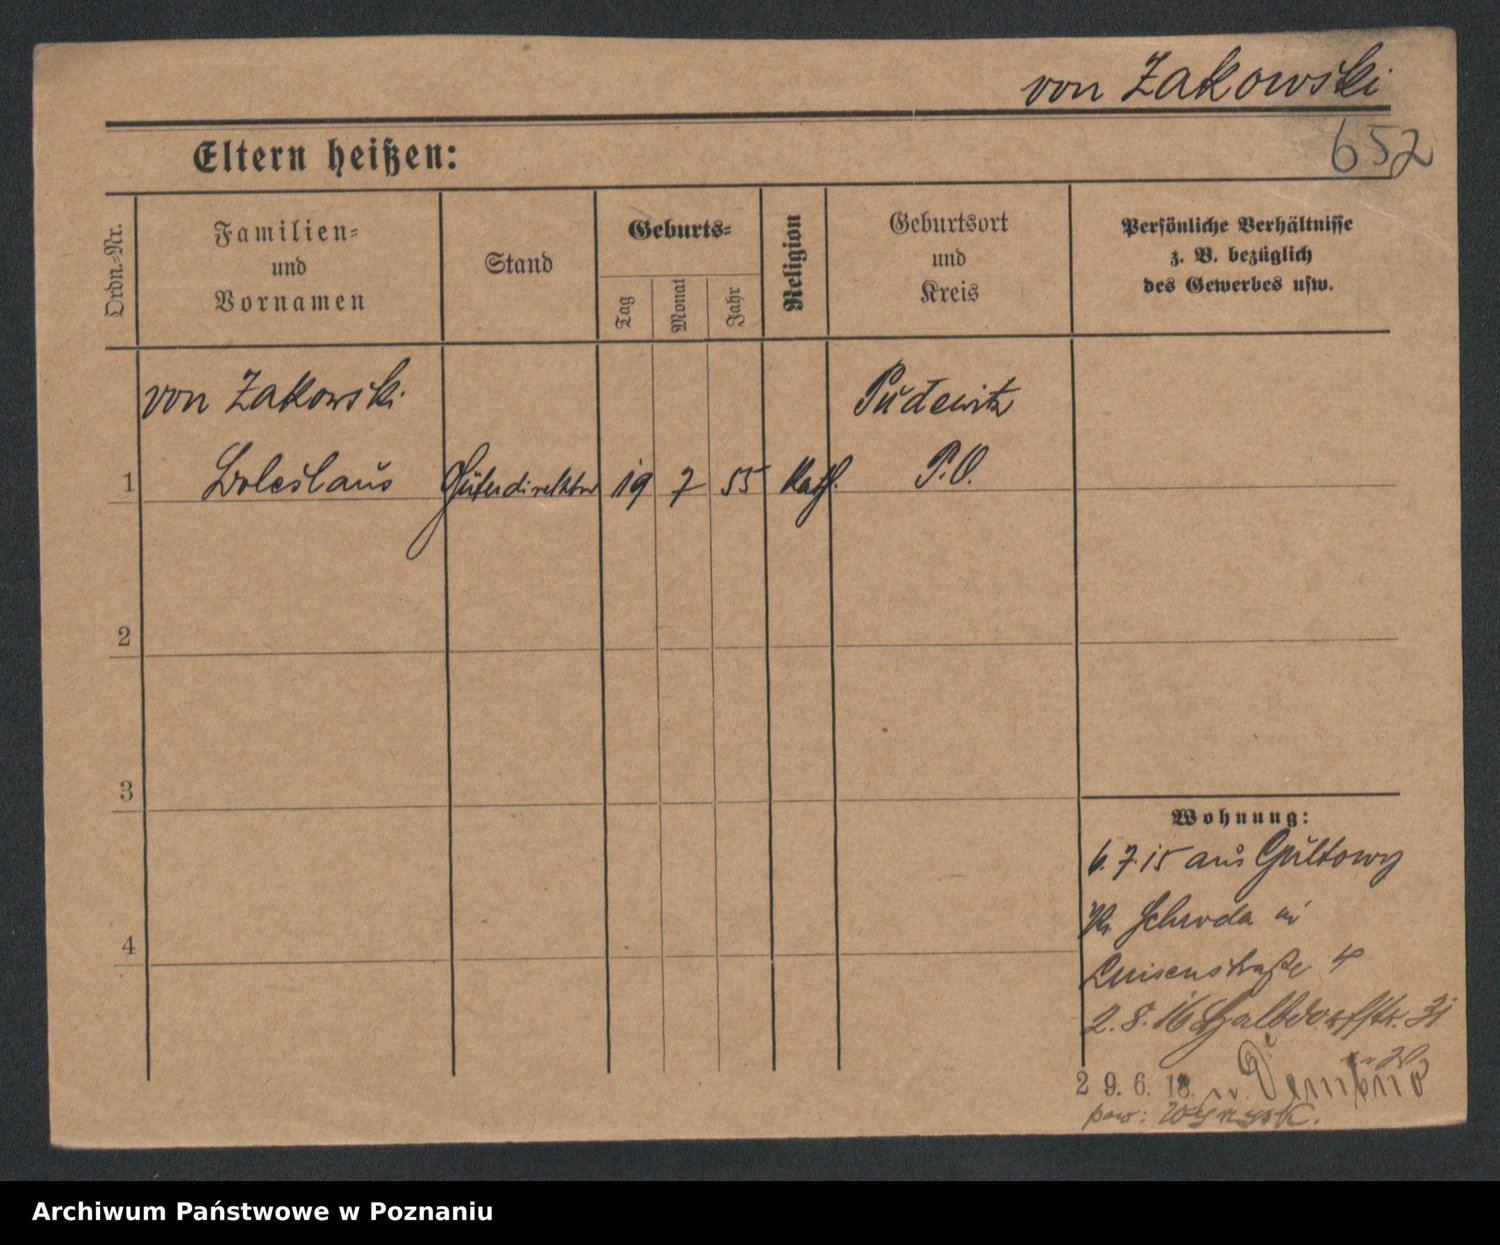 von Zakowski
652
Eltern heißen:
Ordn.-Nr.
Familien-
und
Vornamen
Stand
Geburts-
Tag
Monat
Jahr
Religion
Geburtsort
und
Kreis
Persönliche Verhältnisse
z. B. bezüglich
des Gewerbes usw.
von Zakowski
Pudewitz
1 Boleslaus Güterdirektor 19 7 55 Kath. P.O.
2
3
4
Wohnung:
6.7.15 aus Gultowy
Kr. Schroda in
Luisenstraße 4
2.8.16 Halbdorfstr. 31
29.6.18. n. Dembno
pow: Wyrzysk.
Archiwum Państwowe w Poznaniu